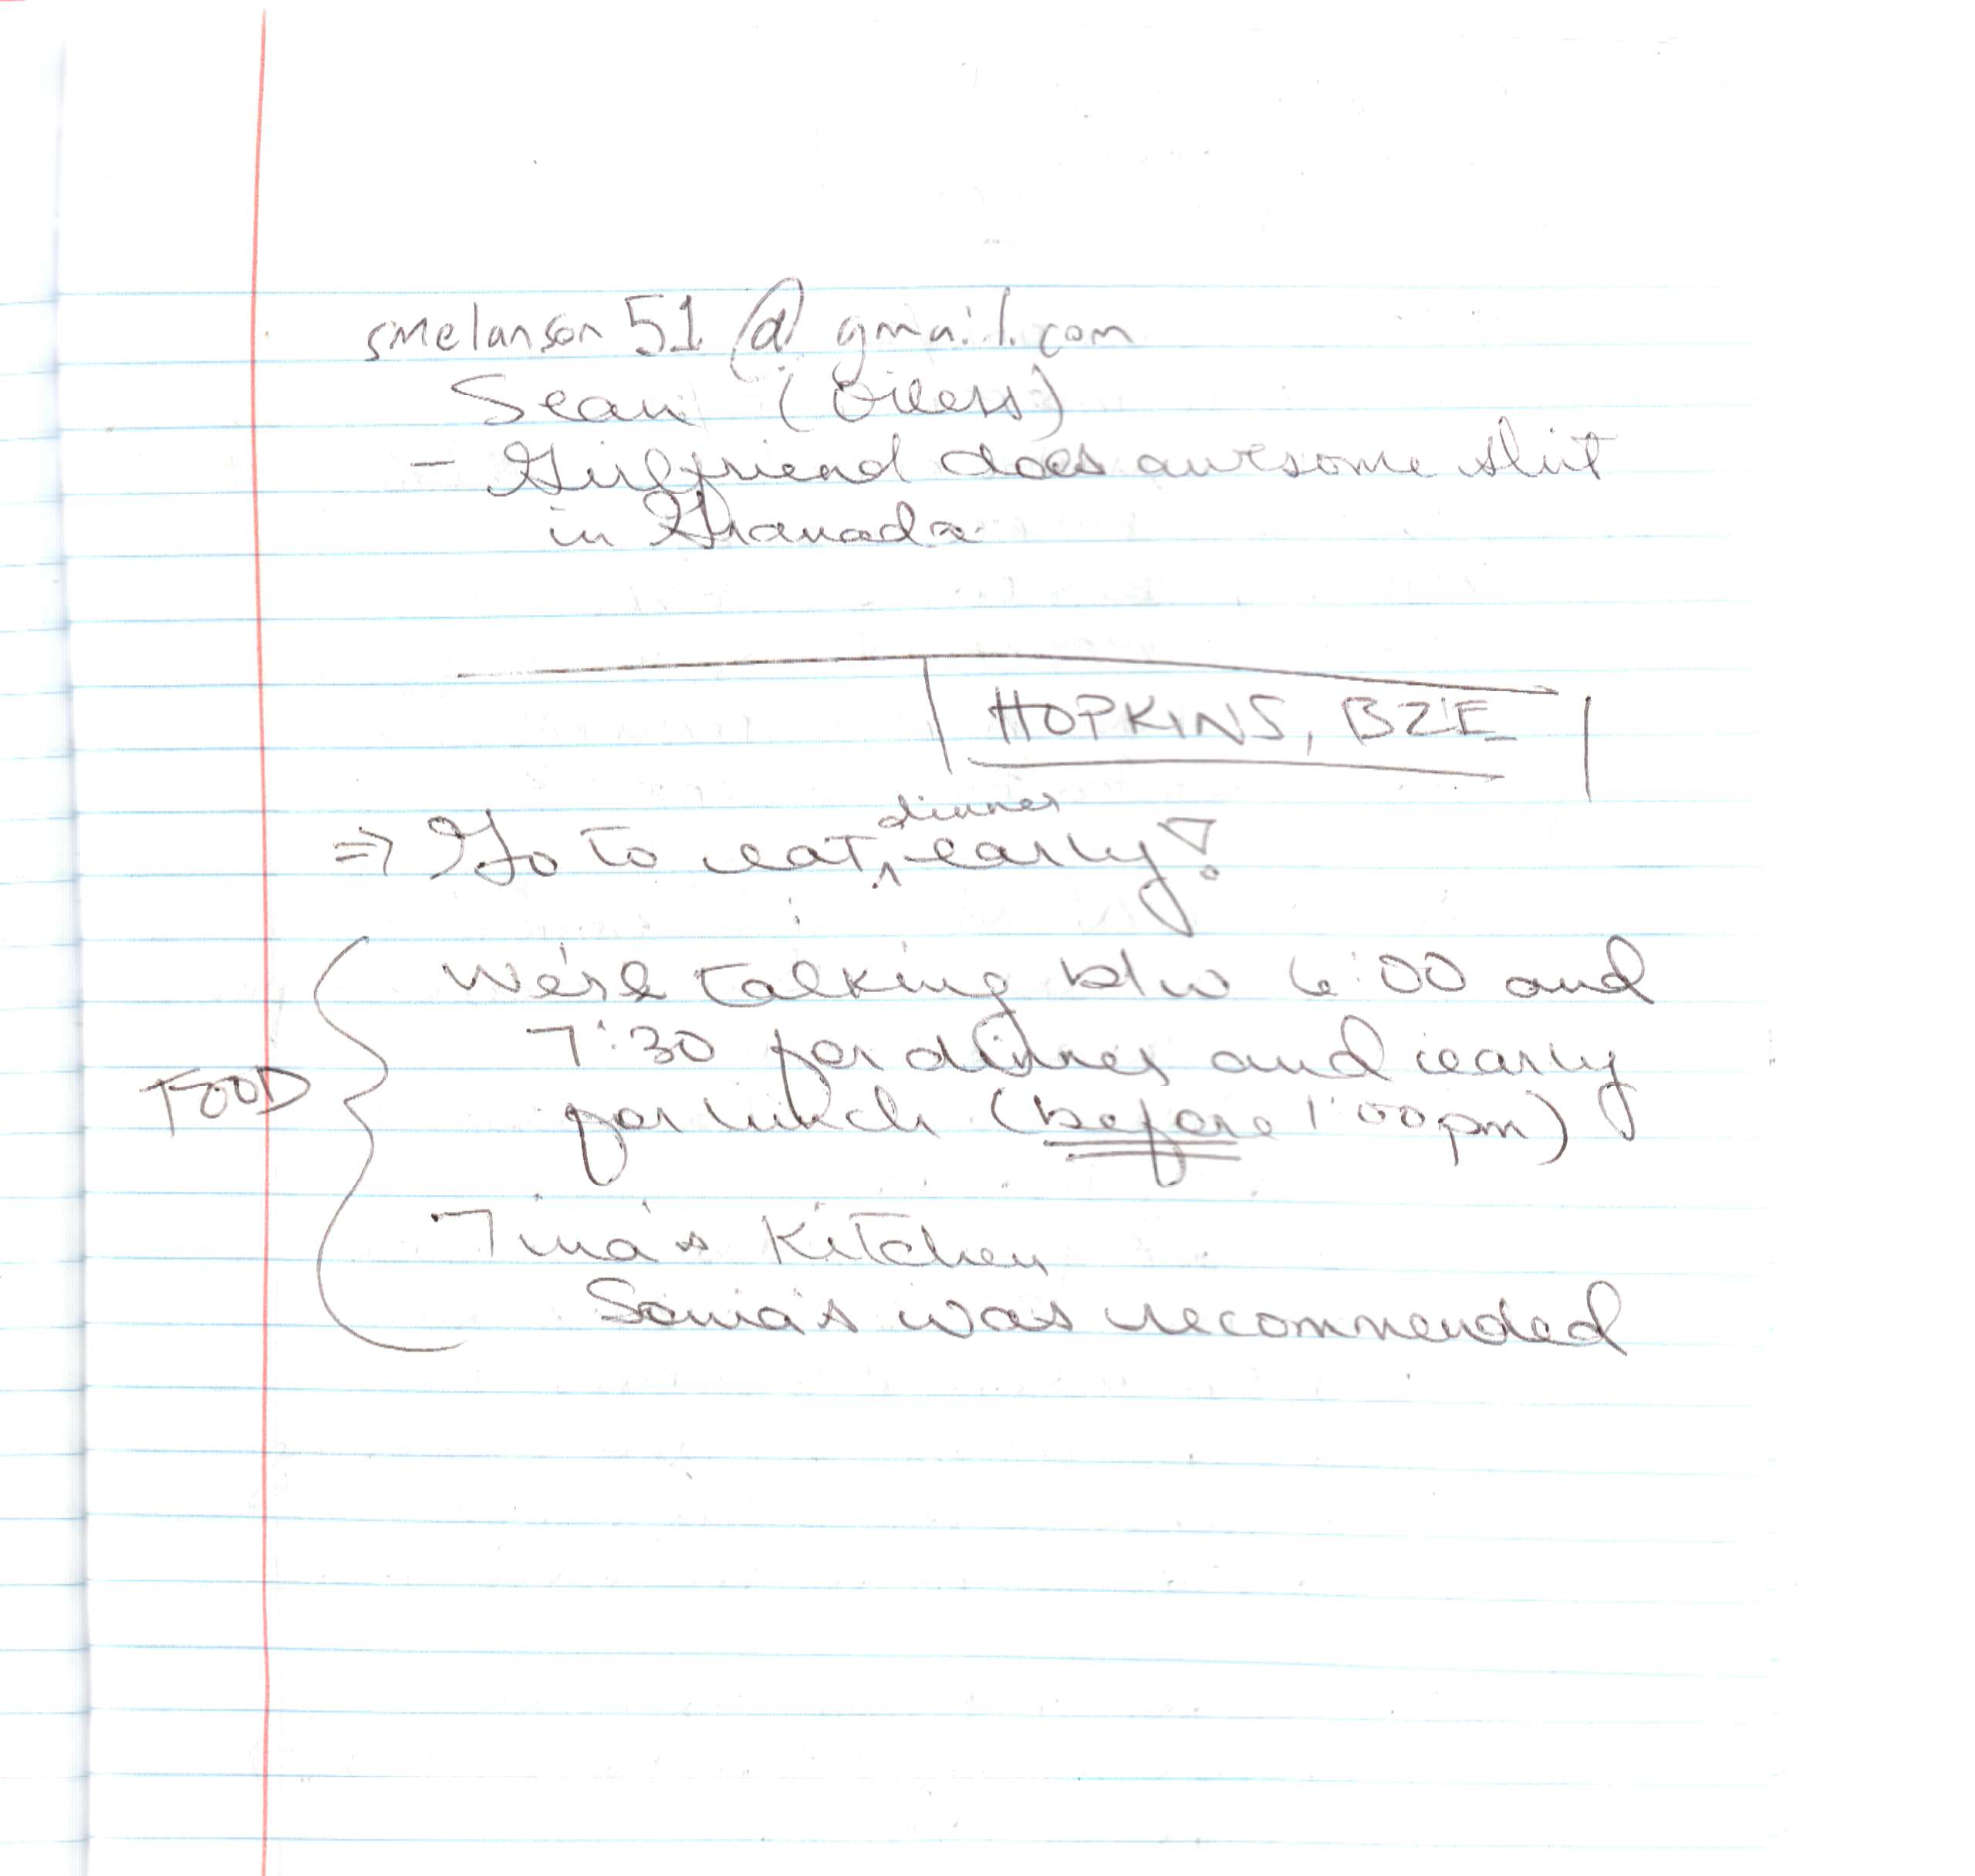 smelanson51@gmail.com
Sean (Oilers)
- Girlfriend does awesome shit
in Granada
HOPKINS, BZE
dinner
⇒ Go to eat, ^ early!
We're talking b/w 6:00 and
7:30 for dinner and early
for lunch (before 1:00pm)
FOOD
Tina's Kitchen
Sonia's was recommended